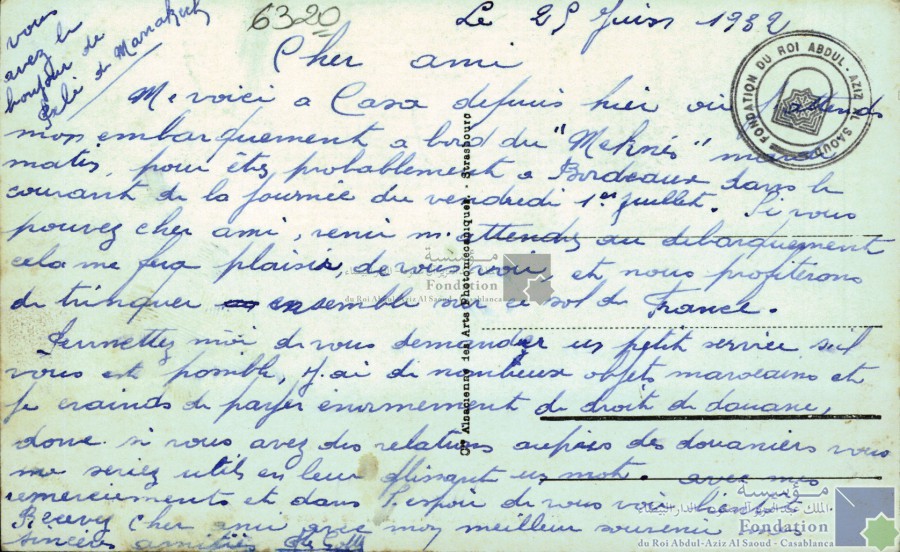 vous
avez le
bonjour de
de Marrakech
6320
Le 25 Juin 1932
Cher ami
Me voici a Casa depuis hier où j'attends
mon embarquement a bord du "Meknès"
matin pour être probablement a Bordeaux dans le
courant de la journée du vendredi 1er juillet. Si vous
pouvez cher ami, venir m'attendre au débarquement
cela me fera plaisir de vous voir, et nous profiterons
de trinquer ensemble sur ce sol de France.
Permettez moi de vous demander un petit service s'il
vous est possible, J'ai de nombreux objets marocains et
je crains de payer énormement de droit de douane,
donc si vous avez des relations auprès des douaniers vous
me seriez utile en leur glissant un mot. avec mes
remerciements et dans l'espoir de vous voir bientôt
Recevez cher ami avec mon meilleur souvenir mes
sincères amitiés
FONDATION DU ROI ABDUL-AZIZ AL SAOUD
Cie Alsacienne des Arts Photomécaniques - Strasbourg
مؤسسة
Fondation
du Roi Abdul-Aziz Al Saoud - Casablanca
مؤسسة
الملك عبد العزيز آل سعود الدار البيضاء
Fondation
du Roi Abdul-Aziz Al Saoud - Casablanca